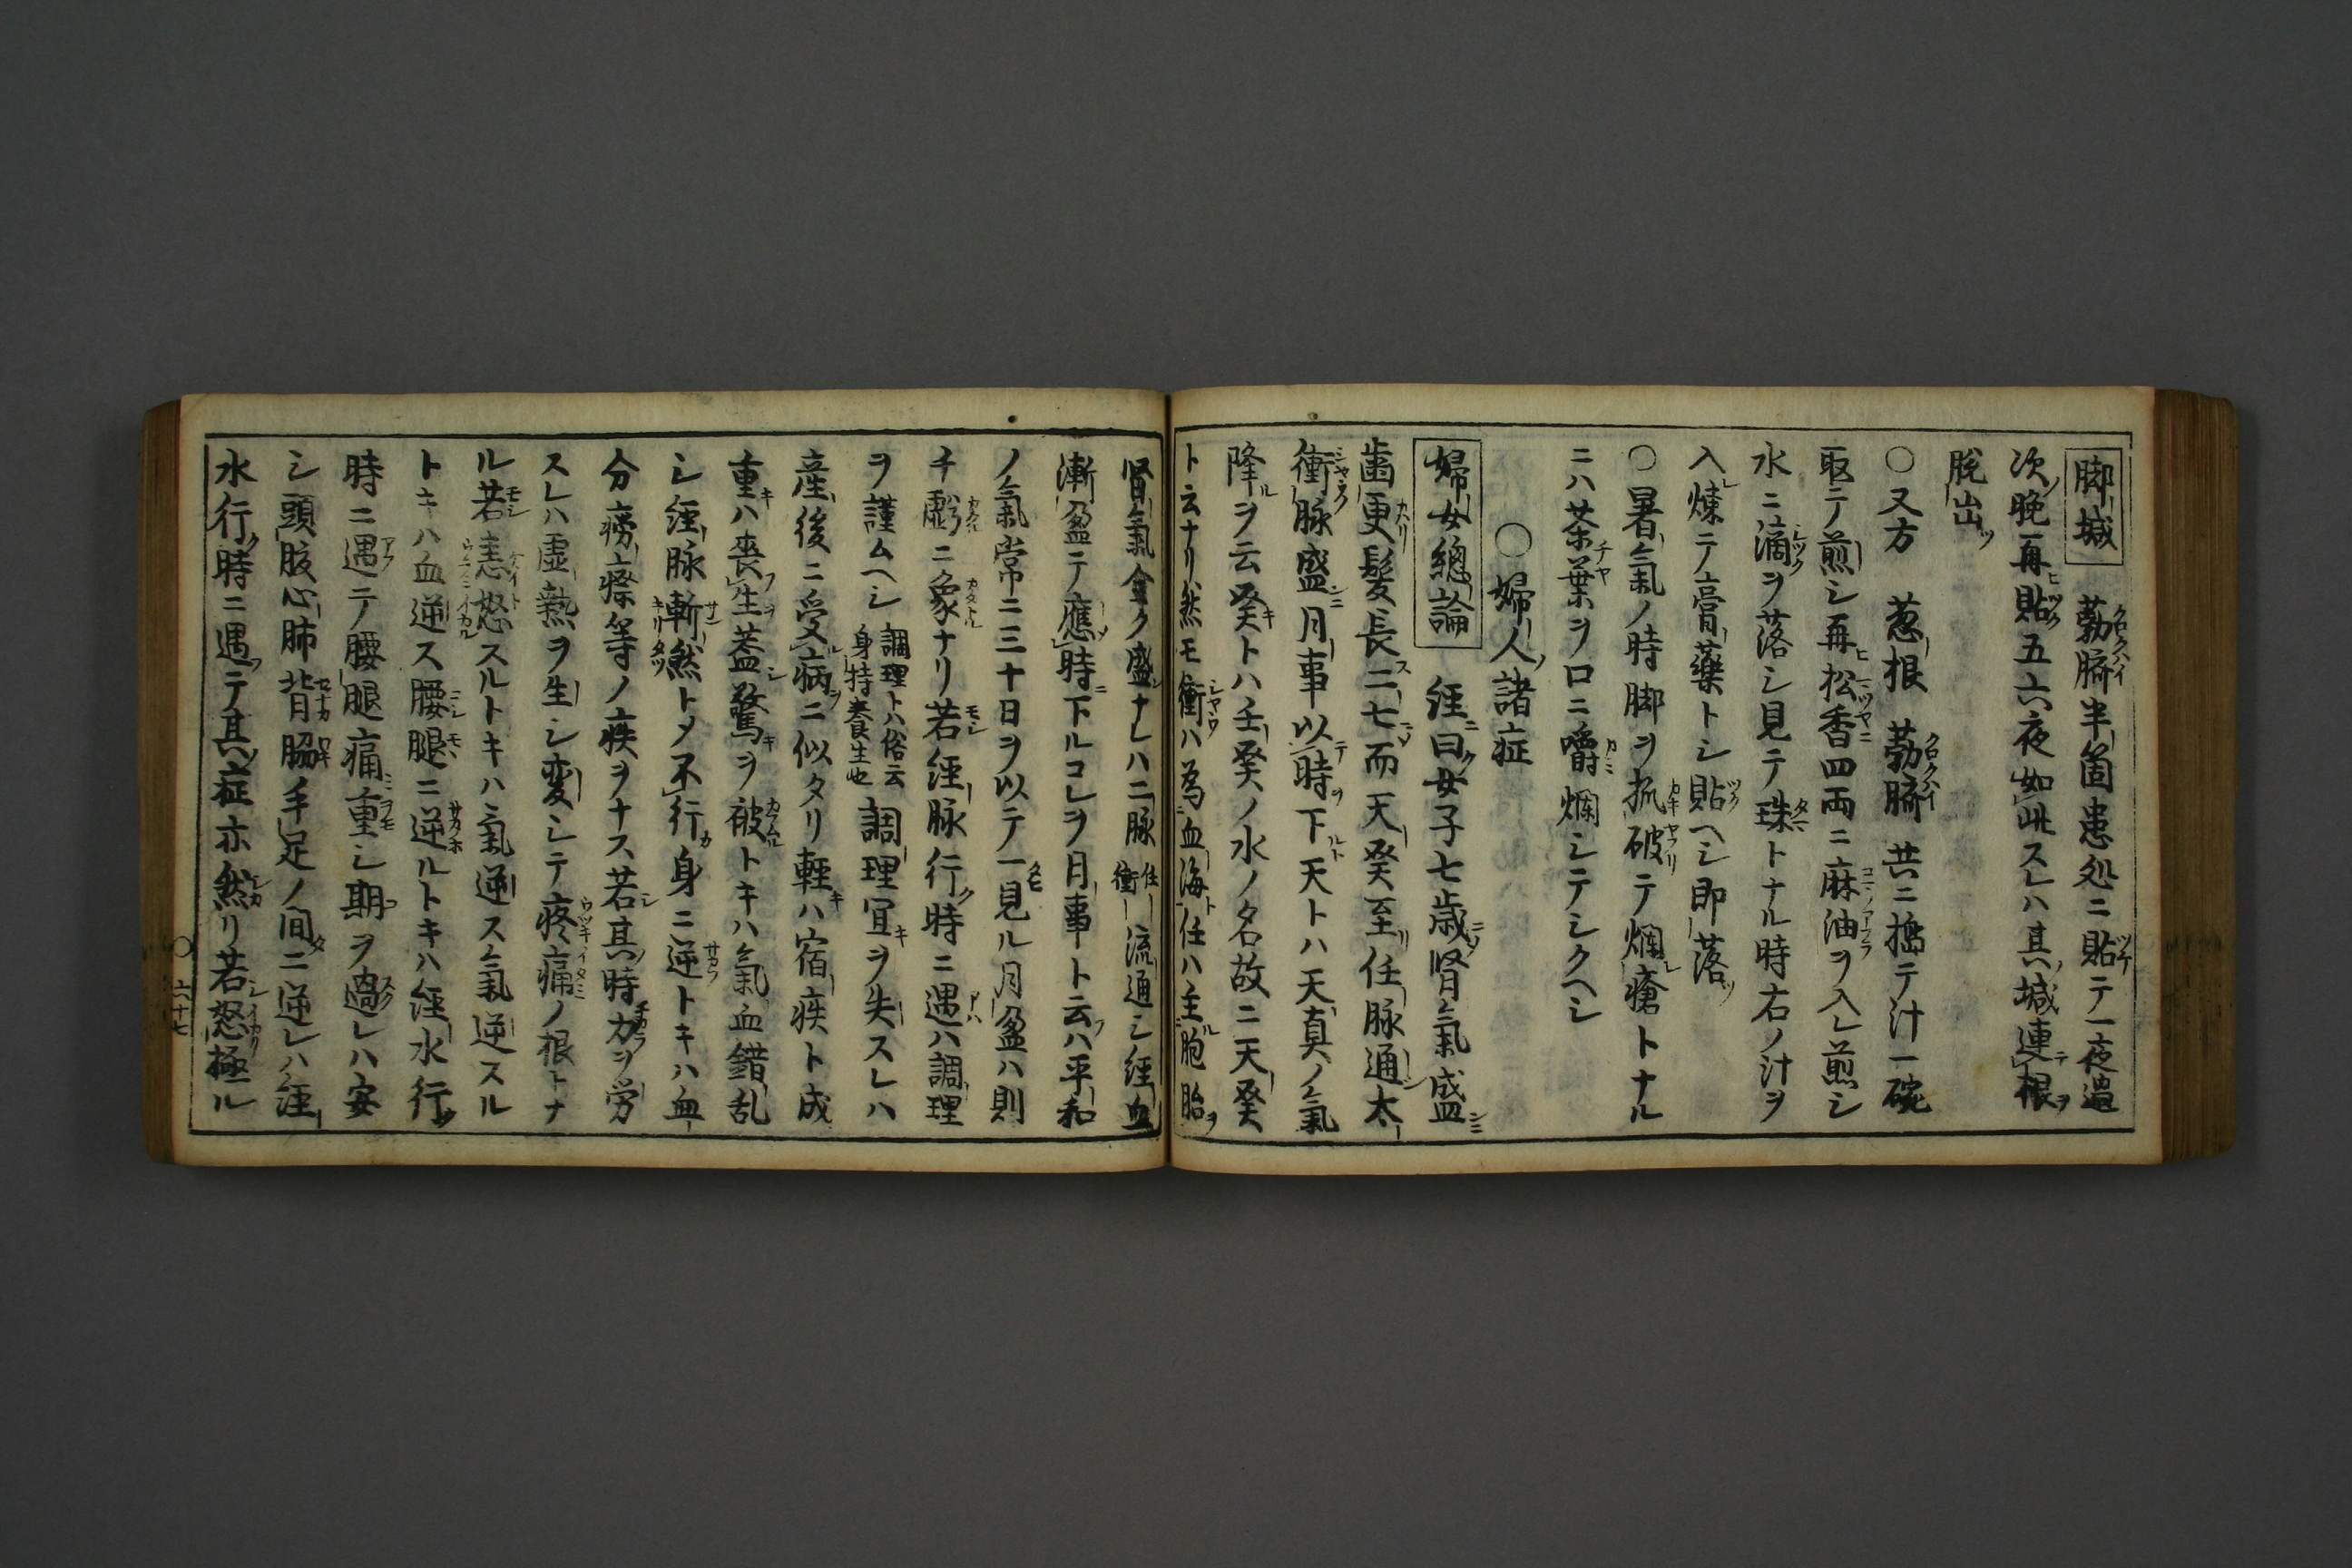 脚墄 勃臍半箇患処ニ貼テ一夜過
次晩再貼五六夜如此スレハ其墄連根
脱出
〇又方 葱根 勃臍 共ニ搗テ汁一碗
取テ煎シ再松香四両ニ麻油ヲ入レ煎シ
水ニ滴ヲ落シ見テ珠トナル時右ノ汁ヲ
入煉テ膏藥トシ貼ヘシ即落
〇暑氣ノ時脚ヲ抓破テ爛瘡トナル
ニハ茶葉ヲロニ嚼爛シテシクヘシ
〇婦人諸症
婦女總論 経曰女子七歳腎氣盛
歯更髮長二七而天癸至任脉通太
衝脉盛月事以時下天トハ天真ノ氣
降ヲ云癸トハ壬癸ノ水ノ名故ニ天癸
ト云ナリ然モ衝ハ為血海任ハ主胞胎
腎氣全ク盛ナレハ二脉任衝流通シ経血
漸盈テ應時下ルコレヲ月事ト云ハ平和
ノ氣常ニ三十日ヲ以テ一見ル月盈ハ則
チ虧ニ象ナリ若経脉行時ニ遇ハ調理
ヲ謹ムヘシ調理トハ俗云身持養生也調理宜ヲ失スレハ
産後ニ受病ニ似タリ軽ハ宿疾ト成
重ハ喪生蓋驚ヲ被トキハ氣血錯乱
シ経脉斬然トメ不行身ニ逆トキハ血
分癆瘵等ノ疾ヲナス若其時力ヲ労
スレハ虚熱ヲ生シ変シテ疼痛ノ根トナ
ル若恚怒スルトキハ氣逆ス氣逆スル
トキハ血逆ス腰腿ニ逆ルトキハ経水行
時ニ遇テ腰腿痛重シ期ヲ過レハ安
シ頭腹心肺背脇手足ノ間ニ逆レハ経
水行時ニ遇テ其症亦然リ若怒極ル
〇六十七